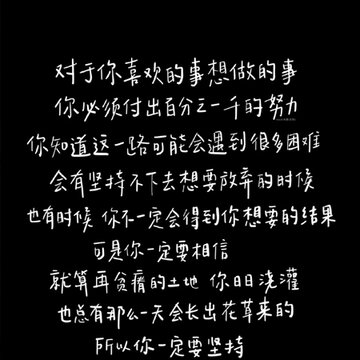 对于你喜欢的事想做的事
你必须付出百分之一千的努力
你知道这一路可能会遇到很多困难
会有坚持不下去想要放弃的时候
也有时候 你不一定会得到你想要的结果
可是你一定要相信
就算再贫瘠的土地 你日日浇灌
也总有那么一天会长出花草来的
所以你一定要坚持